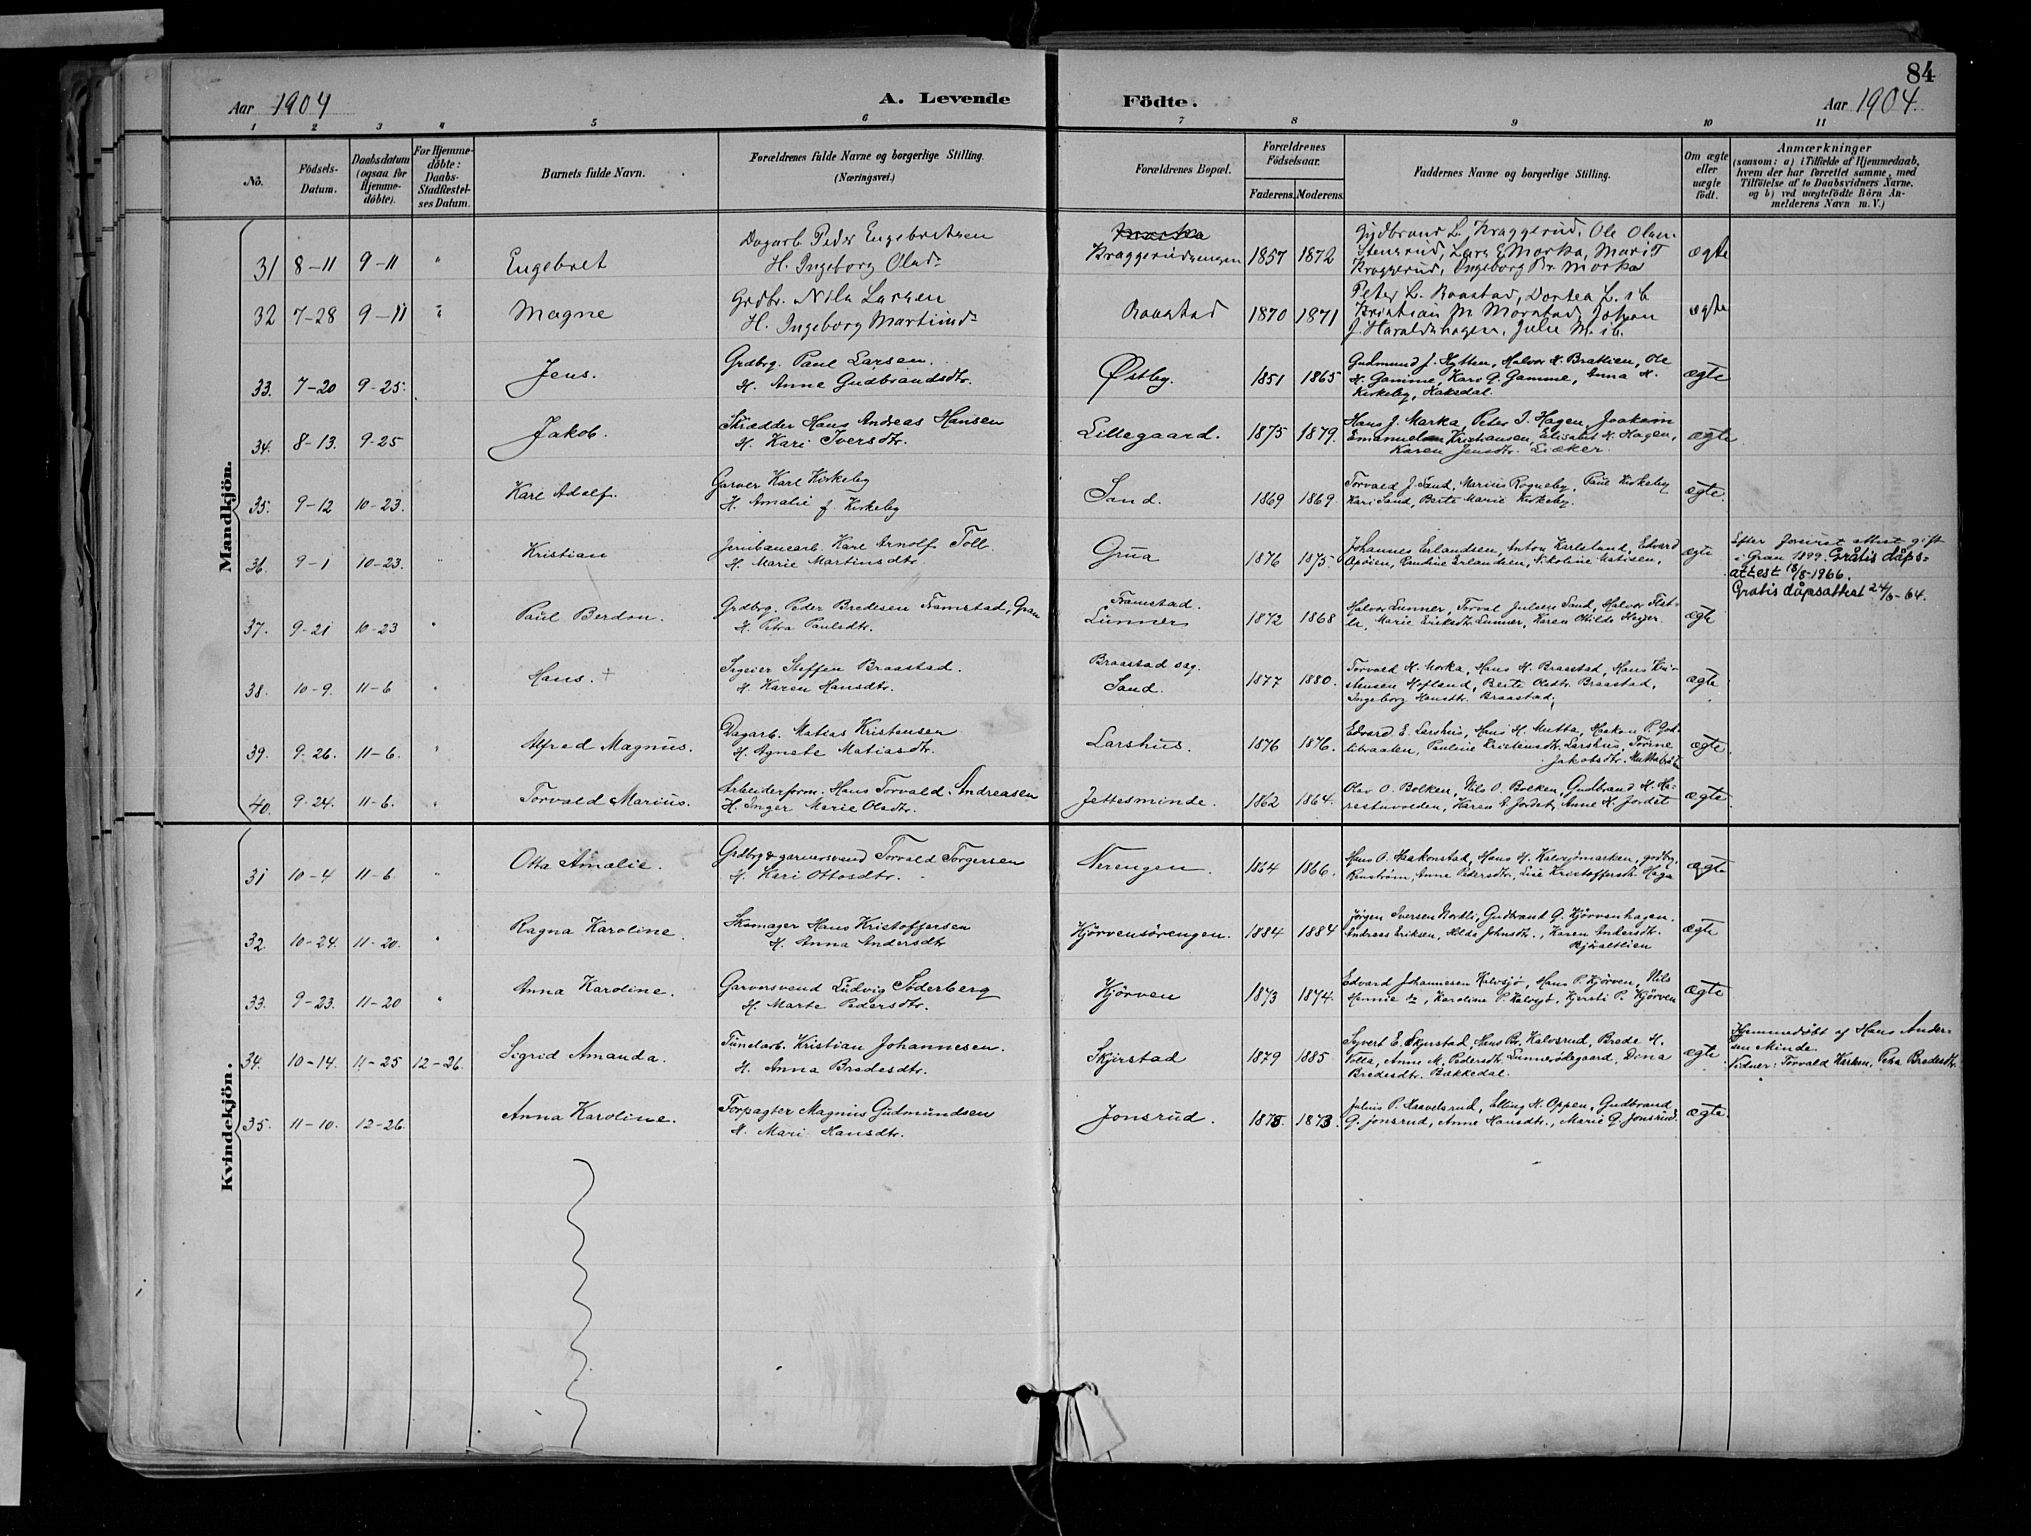 84
Aar 1904
A. Levende
Födte.
Aar 1904.
1 2 3 4 5 6 7 8 9 10 11
No.
Födsels-
Datum.
Daabsdatum
(ogsaa for
Hjemme-
döbte).
For Hjemme-
döbte:
Daabs-
Stadfæstel-
ses Datum.
Barnets fulde Navn.
Forældrenes fulde Navne og borgerlige Stilling.
(Næringsvei.)
Forældrenes Bopæl.
Forældrenes
Födselsaar.
Faderens. Moderens.
Faddernes Navne og borgerlige Stilling.
Om ægte
eller
uægte
født.
Anmærkninger
(saasom: a) i Tilfælde af Hjemmedaab,
hvem der har forrettet samme, med
Tilföielse af to Daabsvidners Navne.
og b) ved uægtefödte Börn An-
melderens Navn m. V.)
Mandkjön.
31 8-11 9-11 " Engebret
Dagarb. Peder Engebretsen
H. Ingeborg Olsd.
Kraggerudengen 1857 1872
Gudbrand L. Kraggerud, Ole Olsen
Stensrud, Lars E. Morka, Marit
Kraggerud, Ingeborg Morka
ægte
32 7-28 9-11 " Magne
Grdbr. Nils Larsen
H. Ingeborg Martinsd.
Raastad 1870 1871
Peter L. Raastad, Dortea L. ib.
Kristian M. Morstad, Johan
J. Haraldshagen, Julie M. ib.
ægte
33. 7-20 9-25. Jens.
Grdbrg. Paul Larsen.
H. Anne Gudbrandsdtr.
Østby. 1851 1865
Gudmund J. Hytten, Halvor H. Brattlien, Ole
H. Gamme, Kari G. Gamme, Anna H.
Kirkeby, Haksdal.
ægte
34. 8-13. 9-25 Jakob.
Skrædder Hans Andreas Hansen
H. Kari Iversdtr.
Lillegaard. 1875 1879.
Hans J. Marka, Peter I. Hagen, Joakim
Emanuel Kristiansen, Elisabet H. Hagen,
Karen Jensdtr.
ægte
35. 9-12 10-23. Karl Adolf.
Garver Karl Kirkeby
H. Amalie f. Kirkeby
Sand. 1869 1869.
Torvald J. Sand, Marius Rogneby, Paul Kirkeby
Kari Sand, Berte Marie Kirkeby.
ægte.
36. 9-1 10-23. " Kristian
Jernbanearb. Karl Arnolf Toll
H. Marie Martinsdtr.
Grua 1876 1875.
Johannes Erlandsen, Anton Karlslund, Edvard
Apoien, Pauline Erlandsen, Nikoline Matisen.
ægte
Efter forevist attest gift
i Gran 1899. Gratis dåps-
attest 18/8-1966.
Gratis dåpsattest 24/6-64.
37. 9-21 10-23 " Paul Berdon.
Grdbrg. Peder Bredesen Framstad, Gran
H. Petra Paulsdtr.
Framstad.
Lunner 1872 1868
Halvor Lunner, Torval Julsen Sand, Halvor Flat-
la, Marie Eriksdtr. Lunner, Karen Otilde Heier.
ægte
38. 10-9. 11-6 " Hans. +
Sageier Steffen Braastad.
H. Karen Hansdtr.
Braastad sag.
Sand. 1877 1880.
Torvald H. Morka, Hans H. Braastad, Hans Kri-
stensen Hofland, Berte Olsdtr. Braastad,
Ingeborg Hansdtr. Braastad,
ægte
39. 9-26. 11-6. " Alfred Magnus.
Dagarb. Matias Kristensen
H. Agnete Matiasdtr.
Larshus. 1876 1876.
Edvard E. Larshus, Hans H. Mutta, Haakon P. God-
libraaten, Pauline Kristensdtr. Larshus, Torine
Jakobsdtr. Mutta
ægte.
40. 9-24. 11-6. " Torvald Marius.
Arbeiderform. Hans Torvald Andreasen
H. Inger Marie Olsdtr.
Jettesminde. 1862 1864.
Olav O. Bolken, Nils O. Bolken, Gudbrand H. Ha-
restuvolden, Karen E. Jordet, Anne H. Jordet
ægte
Kvindekjön.
31 10-4 11-6 " Otta Amalie.
Grdbrg & garversvend Torvald Torgersen
H. Kari Ottosdtr.
Nerengen. 1864 1866.
Hans O. Haakonstad, Hans H. Kalvsjømarken, grdbrg.
Renstrøm, Anne Pedersdtr, Lise Kristoffersdtr. Haga
ægte
32. 10-24. 11-20. " Ragna Karoline.
Skomager Hans Kristoffersen
H. Anna Andersdtr
Kjørvensörengen. 1884 1884
Jørgen Iversen Nordli, Gudbrand G. Kjørvenhagen.
Andreas Eriksen, Hilda Johnsdtr., Karen Andersdtr.
ægte
33. 9-23. 11-20 " Anna Karoline.
Garversvend Ludvig Söderberg
H. Marte Pedersdtr.
Kjörven 1873 1874.
Edvard Johannesen Kalvsjø, Hans P. Kjörven, Nils
Karoline P. Kalvsjø, Kjersti P. Kjörven
ægte
34. 10-14. 11-25 12-26. Sigrid Amanda.
Tunelarb. Kristian Johannesen.
H. Anna Bredesdtr.
Skjerstad 1879 1885
Syvert E. Skjerstad, Hans Kalvsrud, Brede H.
Volla, Anne M. Pedersdtr. Lunnersødegaard, Dina
Bredesdtr. Bakkedal.
ægte.
Hjemmedøbt af Hans Ander-
sen Minde.
Vidner: Torvald Karlsen, Petra Bredesdtr.
35. 11-10. 12-26. Anna Karoline.
Forpagter Magnus Gudmundsen
H. Mari Hansdtr.
Jonsrud. 1875. 1873
Julius P. Haavelsrud, Elling H. Oppen, Gudbrand
G. Jonsrud, Anne Hansdtr., Marie G. Jonsrud.
ægte.